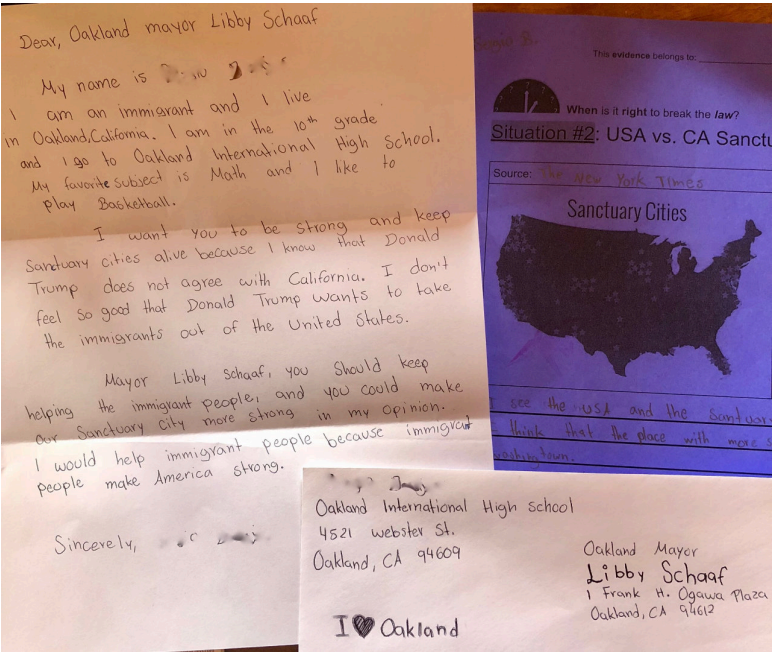 Dear, Oakland mayor Libby Schaaf
My name is
I am an immigrant and I live
in Oakland, California. I am in the 10th grade
and I go to Oakland International High School.
My favorite subject is Math and I like to
play Basketball.
I want you to be strong and keep
Sanctuary cities alive because I know that Donald
Trump does not agree with California. I don't
feel so good that Donald Trump wants to take
the immigrants out of the United States.
Mayor Libby Schaaf, you Should keep
helping the immigrant people, and you could make
our Sanctuary City more strong in my opinion.
I would help immigrant people because immigrant
people make America strong.
Sincerely,
This evidence belongs to:
When is it right to break the law?
Situation #2: USA vs. CA Sanctu
Source: The New York Times
Sanctuary Cities
I see the USA and the Santuar
I think that the place with more s
washingtown.
Oakland International High School
4521 Webster St.
Oakland, CA 94609
I ♥ Oakland
Oakland Mayor
Libby Schaaf
1 Frank H. Ogawa Plaza
Oakland, CA 94612